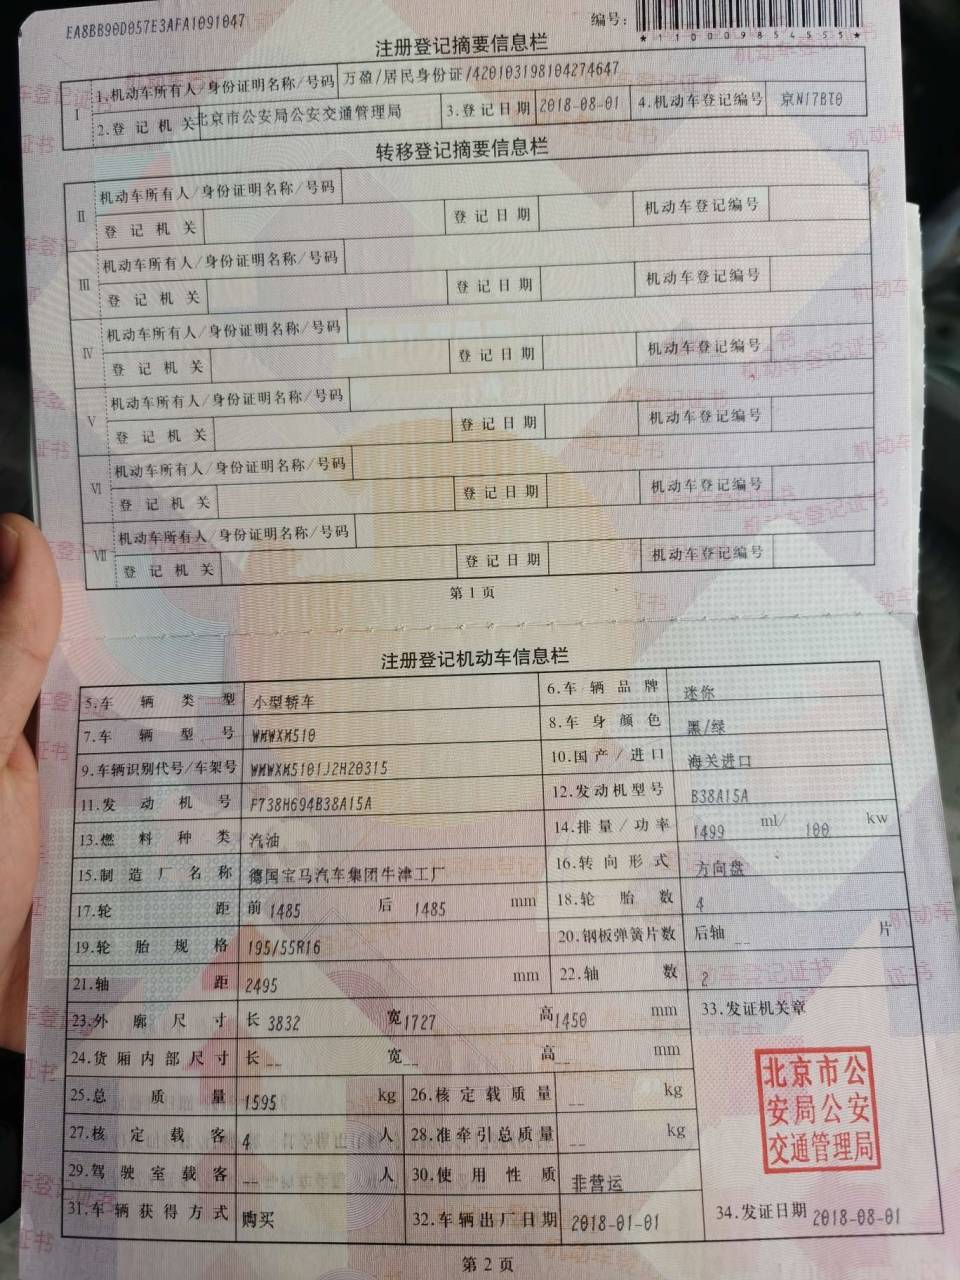 EA8BB90D057E3AFA1091047
编号:
*110009854555*
注册登记摘要信息栏
I 1.机动车所有人/身份证明名称/号码 万盈/居民身份证/420103198104274647
2.登记机关 北京市公安局公安交通管理局 3.登记日期 2018-08-01 4.机动车登记编号 京N17BT0
转移登记摘要信息栏
II 机动车所有人/身份证明名称/号码
登记机关 登记日期 机动车登记编号
III 机动车所有人/身份证明名称/号码
登记机关 登记日期 机动车登记编号
IV 机动车所有人/身份证明名称/号码
登记机关 登记日期 机动车登记编号
V 机动车所有人/身份证明名称/号码
登记机关 登记日期 机动车登记编号
VI 机动车所有人/身份证明名称/号码
登记机关 登记日期 机动车登记编号
VII 机动车所有人/身份证明名称/号码
登记机关 登记日期 机动车登记编号
第1页
注册登记机动车信息栏
5.车辆类型 小型轿车 6.车辆品牌 迷你
7.车辆型号 WMWXM510 8.车身颜色 黑/绿
9.车辆识别代号/车架号 WMWXM5101J2H20315 10.国产/进口 海关进口
11.发动机号 F738H694B38A15A 12.发动机型号 B38A15A
13.燃料种类 汽油 14.排量/功率 1499 ml/ 100 kw
15.制造厂名称 德国宝马汽车集团牛津工厂 16.转向形式 方向盘
17.轮距 前 1485 后 1485 mm 18.轮胎数 4
19.轮胎规格 195/55R16 20.钢板弹簧片数 后轴 -- 片
21.轴距 2495 mm 22.轴数 2
23.外廓尺寸 长 3832 宽 1727 高 1450 mm 33.发证机关章
24.货厢内部尺寸 长 -- 宽 -- 高 -- mm
25.总质量 1595 kg 26.核定载质量 -- kg
27.核定载客 4 人 28.准牵引总质量 -- kg
29.驾驶室载客 -- 人 30.使用性质 非营运
31.车辆获得方式 购买 32.车辆出厂日期 2018-01-01 34.发证日期 2018-08-01
北京市公
安局公安
交通管理局
第2页